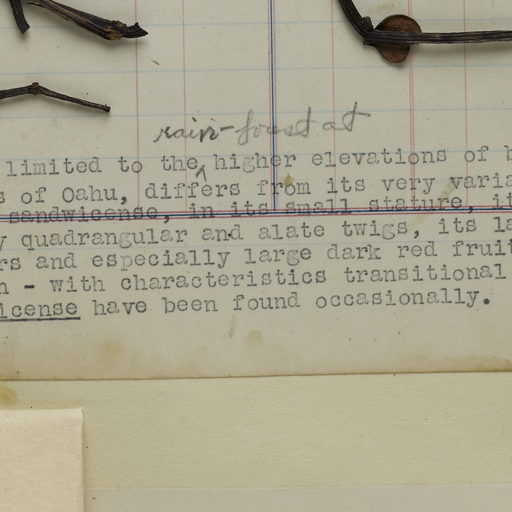 rain-forest at
limited to the higher elevations of b
s of Oahu, differs from its very varia
sandwicense, in its small stature, it
y quadrangular and alate twigs, its la
rs and especially large dark red fruit
n - with characteristics transitional
icense have been found occasionally.